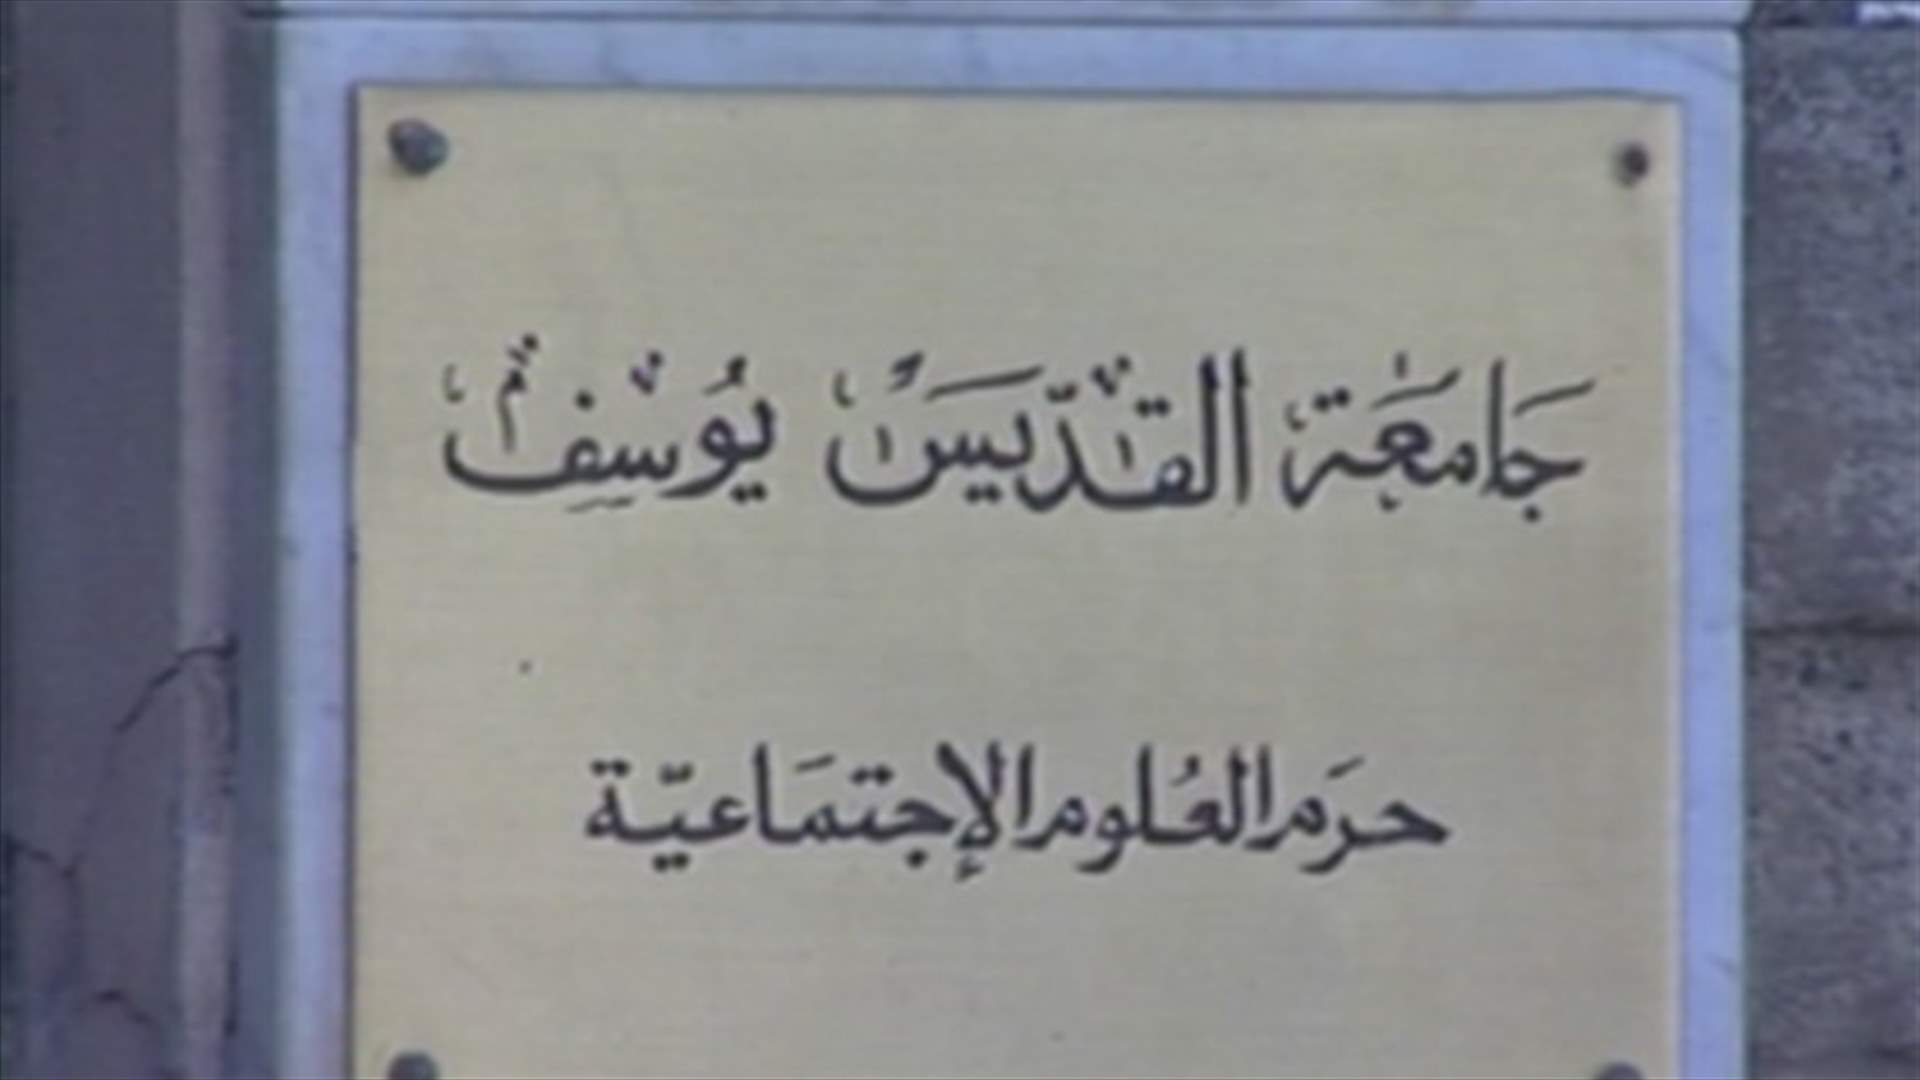 جَامعَة القدّيسَ يُوسفِ
حرَم العُلوم الإجتمَاعيّة